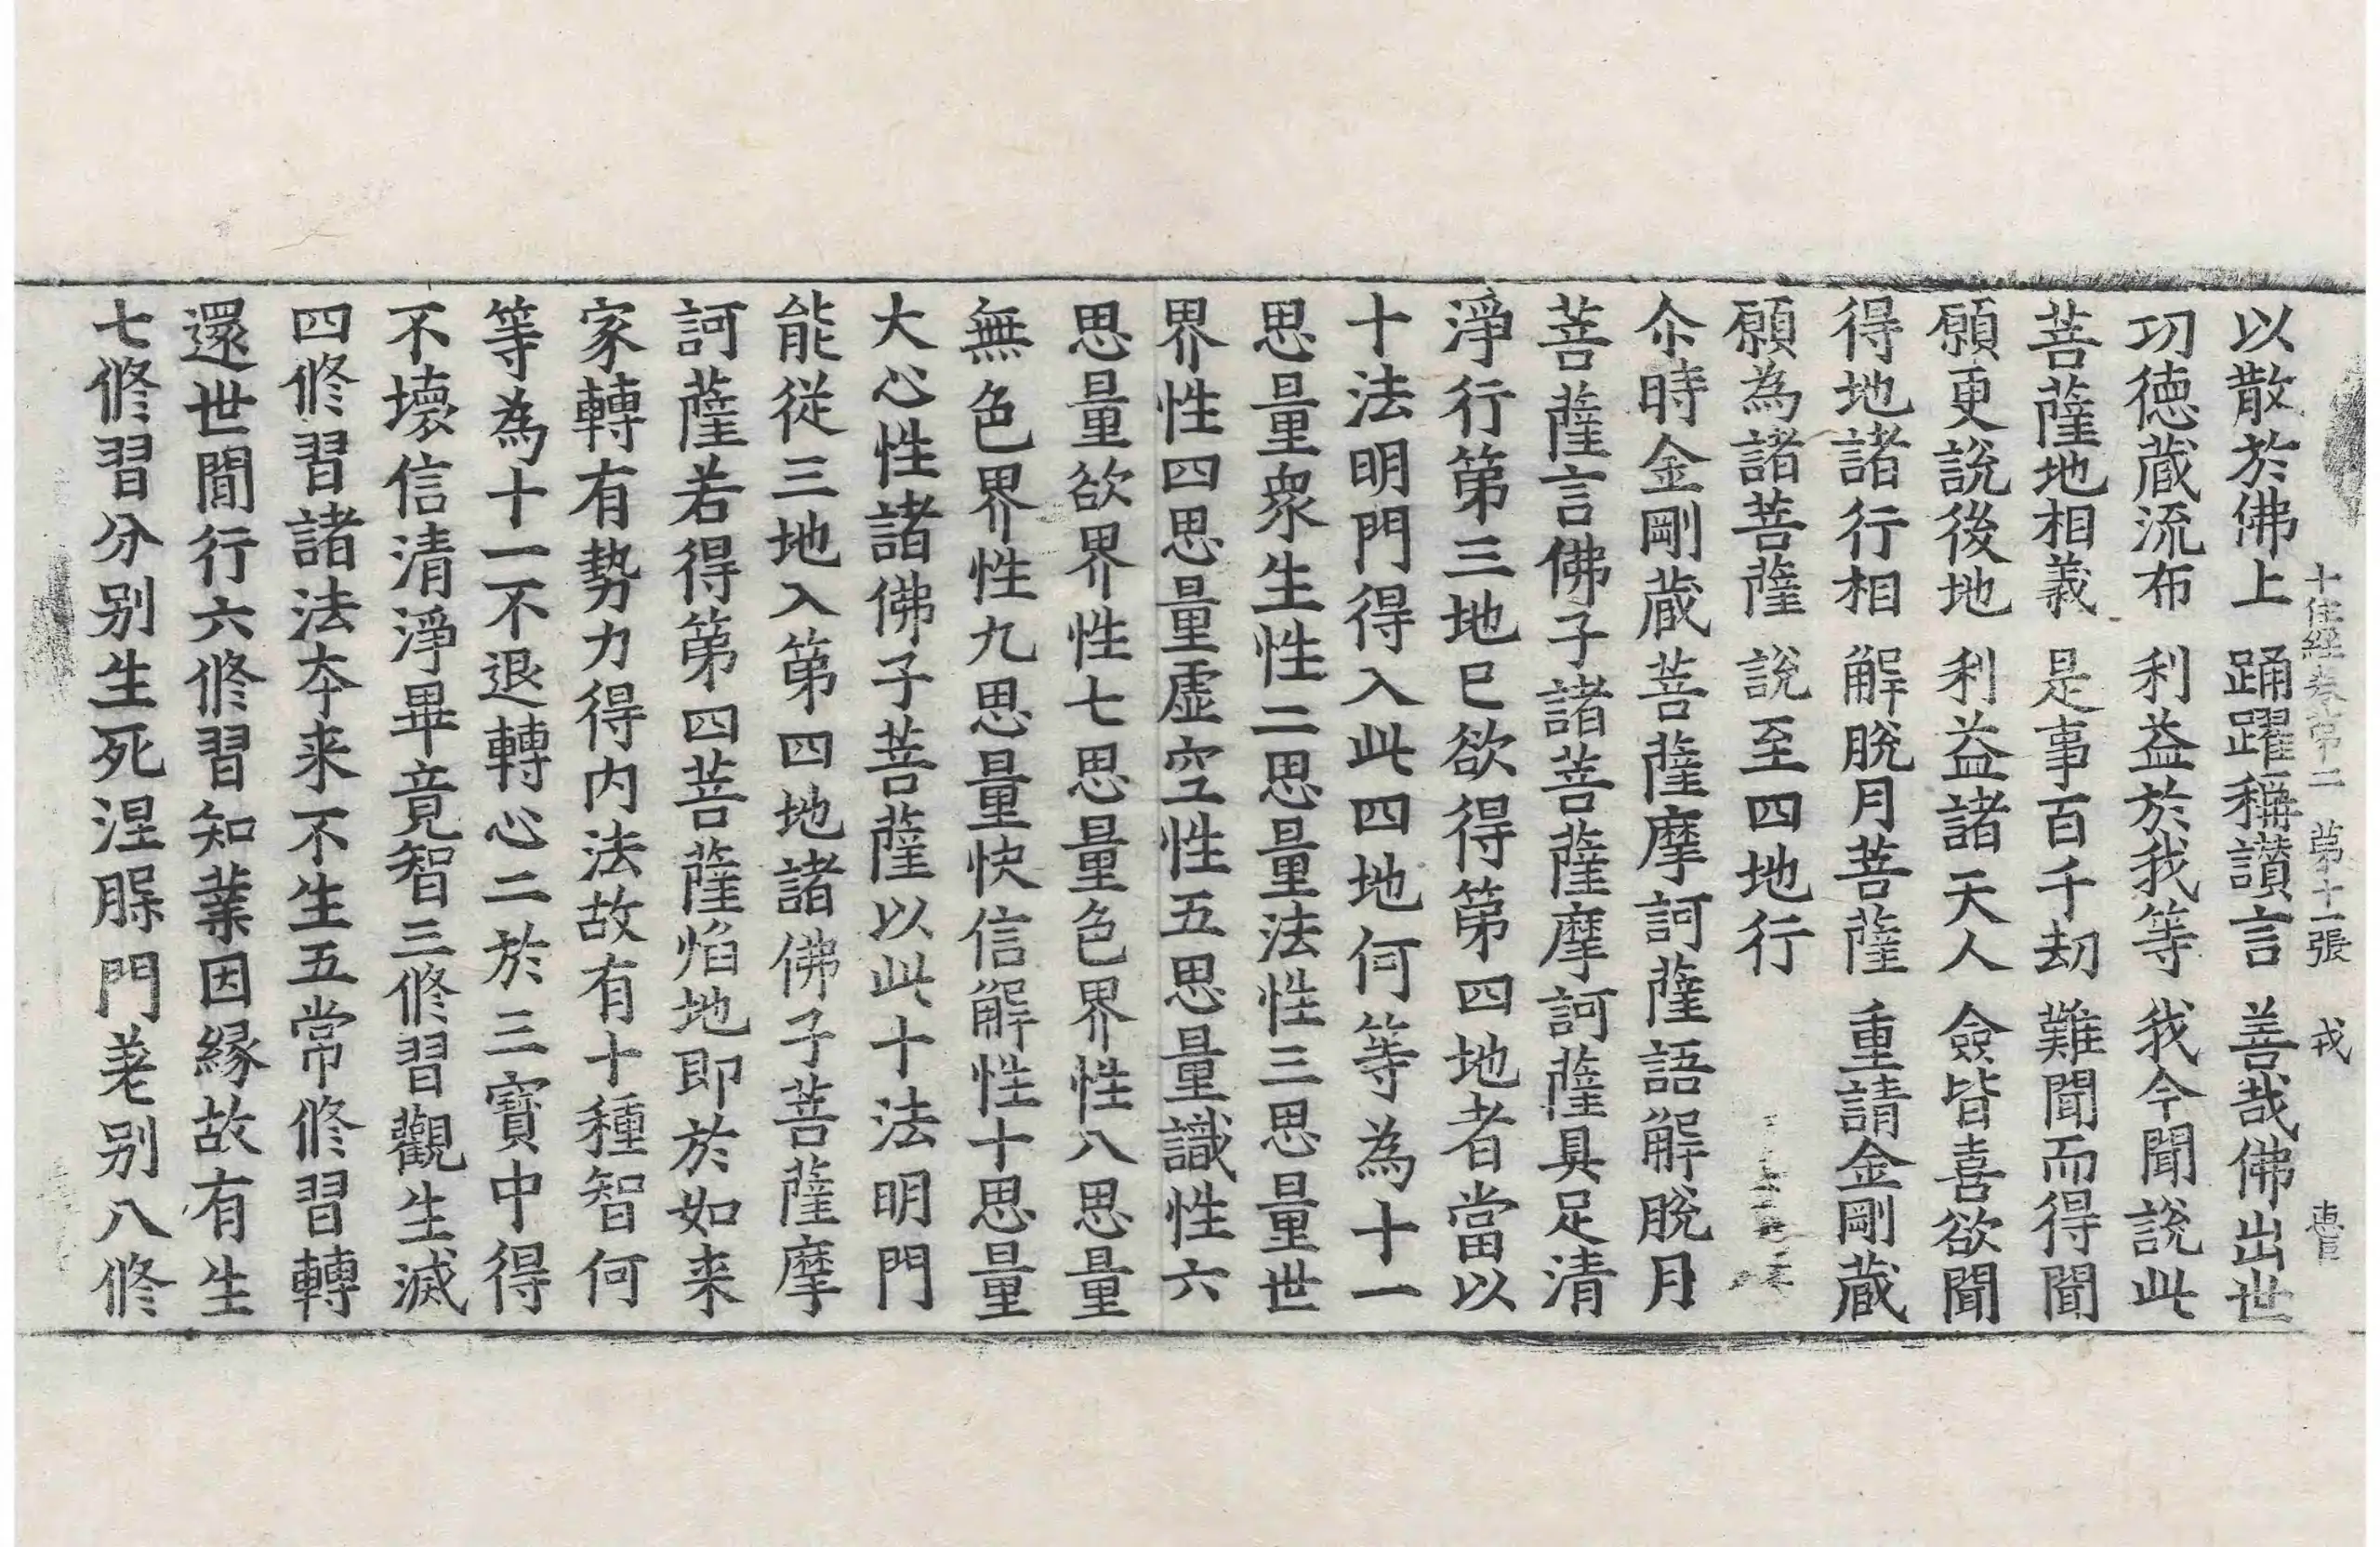 十住經卷第二 第十一張 戎
以散於佛上 踊躍稱讃言 善哉佛出世
功德藏流布 利益於我等 我今聞說此
菩薩地相義 是事百千劫 難聞而得聞
願更說後地 利益諸天人 僉皆喜欲聞
得地諸行相 解脫月菩薩 重請金剛藏
願為諸菩薩 說至四地行
尒時金剛藏菩薩摩訶薩語解脫月
菩薩言佛子諸菩薩摩訶薩具足清
淨行第三地已欲得第四地者當以
十法明門得入此四地何等為十一
思量衆生性二思量法性三思量世
界性四思量虛空性五思量識性六
思量欲界性七思量色界性八思量
無色界性九思量快信解性十思量
大心性諸佛子菩薩以此十法明門
能從三地入第四地諸佛子菩薩摩
訶薩若得第四菩薩焰地即於如来
家轉有勢力得内法故有十種智何
等為十一不退轉心二於三寶中得
不壞信清淨畢竟智三修習觀生滅
四修習諸法夲来不生五常修習轉
還世閒行六修習知業因縁故有生
七修習分別生死涅槃門差別八修